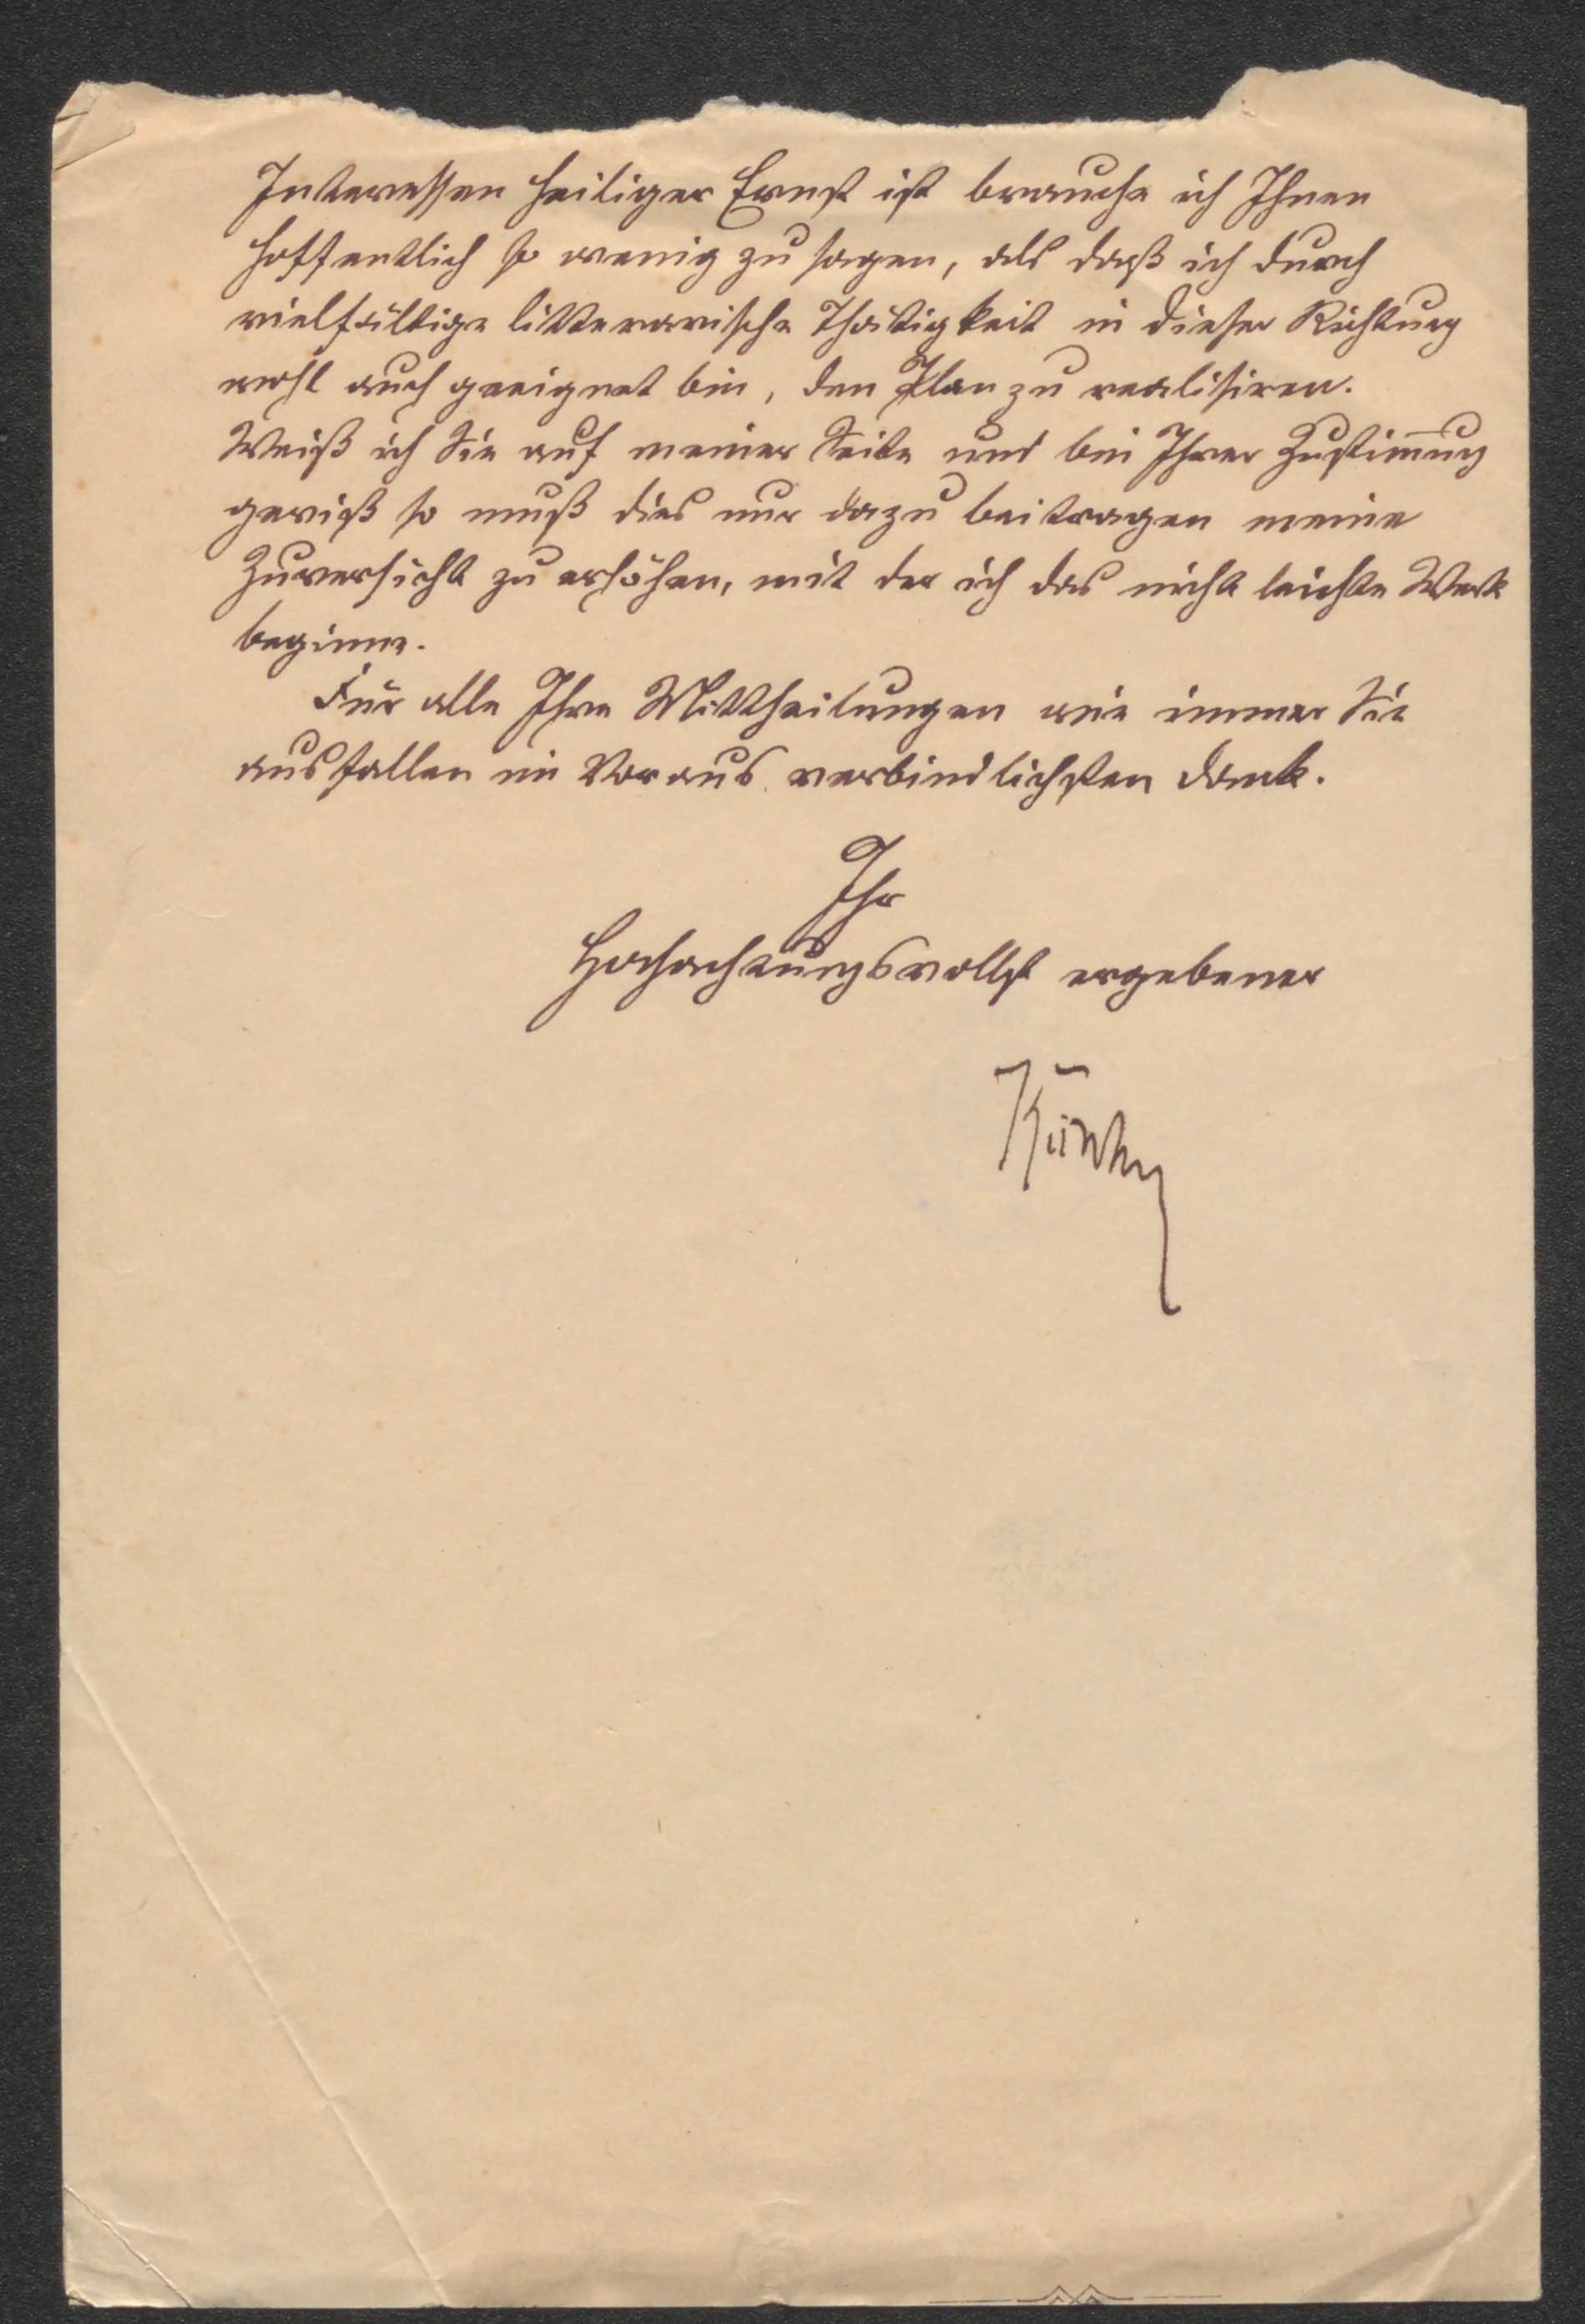 Interessen heiliger Ernst ist brauche ich Ihnen
hoffentlich so wenig zu sagen, als daß ich durch
vielfältige litterarische Thätigkeit in dieser Richtung
wohl auch geeignet bin, den Plan zu realisiren.
Weiß ich Sie auf meiner Seite und bin Ihrer Zustim̅ung
gewiß so muß dies nur dazu beitragen meine
Zuversicht zu erhöhen, mit der ich das nicht leichte Werk
beginne.
Für alle Ihre Mittheilungen wie immer Sie
ausfallen im Voraus verbindlichsten Dank.
Ihr
Hochachtungsvollst ergebener